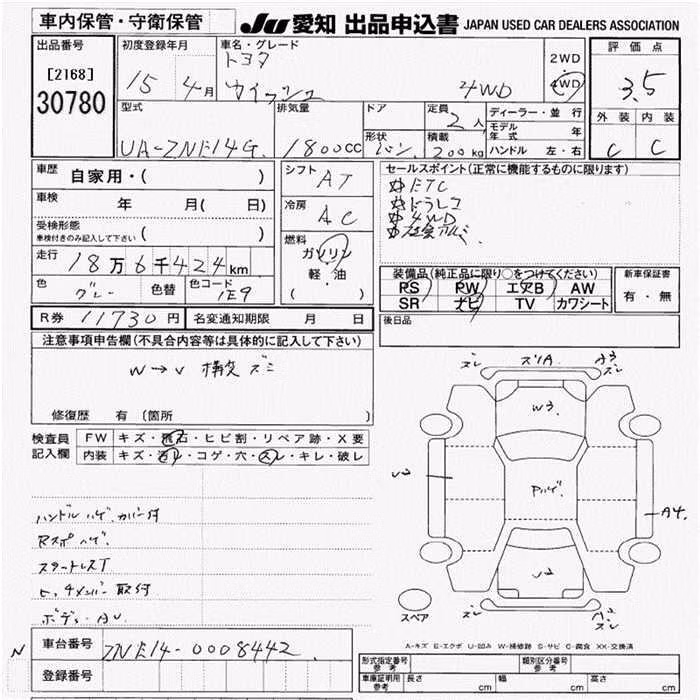 車内保管・守衛保管
JU 愛知 出品申込書 JAPAN USED CAR DEALERS ASSOCIATION
出品番号
[2168]
30780
初度登録年月
15 年 4 月
車名・グレード
トヨタ
ウイッシュ
4WD
2WD
4WD
評価点
3.5
外装 内装
C C
型式
UA-ZNE14G
排気量
1800CC
ドア
形状
バン
定員
2人
積載
200kg
ディーラー・並行
モデル年式 年
ハンドル 左・右
車歴
自家用・( )
車検
年 月( 日)
受検形態
車検付きのみ記入して下さい ( )
走行
18万6千424km
色
グレー
色替
色コード
1E9
シフト
AT
冷房
AC
燃料
ガソリン
軽・油
( )
セールスポイント(正常に機能するものに限ります)
ETC
ドラレコ
4WD
社外アルミ
装備品(純正品に限り○をつけてください)
PS PW エアB AW
SR ナビ TV カワシート
新車保証書
有・無
R券 11730円 名変通知期限 月 日
後日品
注意事項申告欄(不具合内容等は具体的に記入して下さい)
N→V 構変ズミ
修復歴 有(箇所 )
検査員
記入欄
FW キズ・飛石・ヒビ割・リペア跡・X要
内装 キズ・汚れ・コゲ・穴・スレ・キレ・破レ
ハンドルハゲ、カバー付
Rスポハゲ
ボディ・AU
ズレ ズリA A3 ズレ
W3
Pハゲ
U2
A4
U2
スペア ズレ ズレ
A-キズ E-エクボ U-凹み W-補修跡 S-サビ C-腐食 XX-交換済
N 車台番号 ZNE14-0008442
登録番号
型式指定番号 参考
類別区分番号 参考
車庫証明用 参考 長さ cm 幅 cm 高さ cm